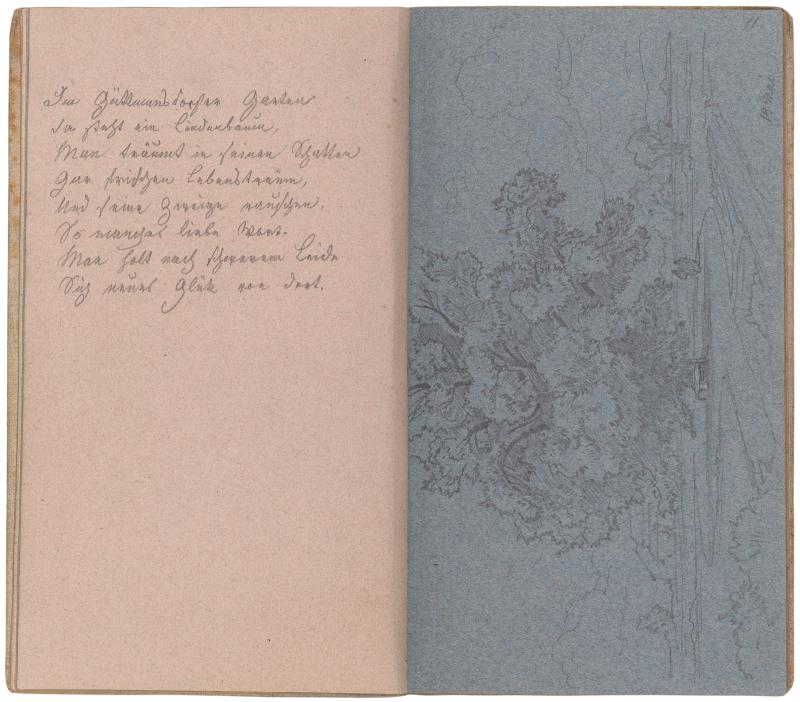 Im Güttmannsdorfer Garten
da steht ein Lindenbaum,
Man träumt in seinen Schatten
Gar frischen Lebenstraum,
Und seine Zweige rauschen,
So manches liebe Wort.
Man holt nach schwerem Leide
Sich neues Glük von dort.
11.